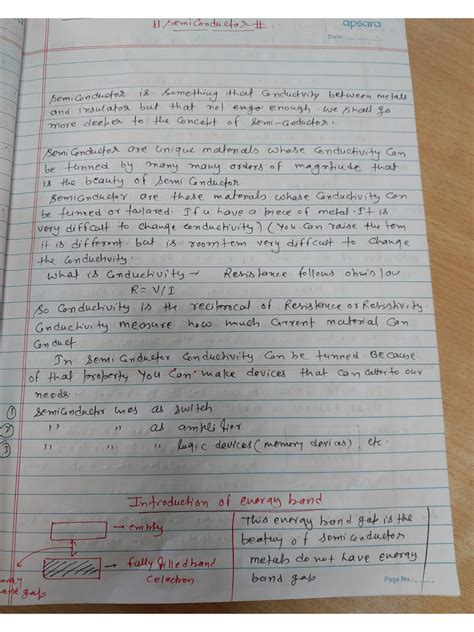 # Semiconductor #
apsara
Date
Semiconductor is something that Conductivity between metals
and insulator but that not engo enough. We shall go
more deeper to the Concept of Semi-Conductor.
Semiconductor are unique materials whose Conductivity Can
be tunned by many many orders of magnitude that
is the beauty of Semiconductor.
Semiconductor are those materials whose Conductivity Can
be tunned or tailared. If u have a piece of metal. It is
very difficult to change Conductivity) (You Can raise the tem
it is different but is room tem very difficult to change
the Conductivity.
What is Conductivity → Resistance follows ohm's law
R = V/I
So Conductivity is the reciprocal of Resistance or Resistivity.
Conductivity measure how much Current material Can
Conduct
In Semiconductor Conductivity Can be tunned. Because
of that property You Can make devices that can Catter to our
needs.
① Semiconductor uses as switch
② " " as amplifier
③ " " logic devices (memory devias), etc.
Introduction of energy band
→ empty
→ fully filled band
energy
band gap
This energy band gap is the
beatuy of Semiconductor
metals do not have energy
band gap
Page No.: